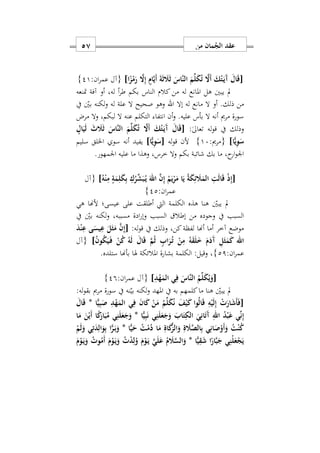 عقد الجُمان من
٥٧
[قَالَ آيَتُكَ أَلَّا تُكَلِّمَ النَّاسَ ثَلَاثَةَ أَيَّامٍ إِلَّا رَمْزًا] {آل عمران: ٤١}
لم يبين هل المانع له من كلام الناس بكم طرأ له، أو آفة تمنعه
من ذلك. أو لا مانع له إلا الله وهو صحيح لا علة له ولكنه بيّن في
سورة مريم أنه لا بأس عليه. وأن انتفاء التكلم عنه لا لبكم، ولا مرض
وذلك في قوله تعالى: [قَالَ آيَتُكَ أَلَّا تُكَلِّمَ النَّاسَ ثَلَاثَ لَيَالٍ
سَوِيًّا] {مريم: ١٠} لأن قوله [سَوِيًّا] يفيد أنه سوي الخلق سليم
الجوارح، ما بك شائبة بكم ولا خرس، وهذا ما عليه الجمهور.
[إِذْ قَالَتِ الْمَلَائِكَةُ يَا مَرْيَمُ إِنَّ اللهَ يُبَشِّرُكِ بِكَلِمَةٍ مِنْهُ] {آل
عمران: ٤٥}
لم يبيّن هنا هذه الكلمة التي أطلقت على عيسى؛ لأنها هي
السبب في وجوده من إطلاق السبب وإرادة مسببه، ولكنه بيّن في
موضع آخر أنها لفظة كن، وذلك في قوله: [إِنَّ مَثَلَ عِيسَى عِنْدَ
اللهِ كَمَثَلِ آدَمَ خَلَقَهُ مِنْ تُرَابٍ ثُمَّ قَالَ لَهُ كُنْ فَيَكُونُ] {آل
عمران: ٥٩}، وقيل: الكلمة بشارة الملائكة لها بأنها ستلده.
[وَيُكَلِّمُ النَّاسَ فِي الْمَهْدِ] {آل عمران: ٤٦}
لم يبيّن هنا ما كلمهم به في المهد ولكنه بيّنه في سورة مريم بقوله:
[فَأَشَارَتْ إِلَيْهِ قَالُوا كَيْفَ نُكَلِّمُ مَنْ كَانَ فِي الْمَهْدِ صَبِيًّا * قَالَ
إِنِّي عَبْدُ اللهِ آتَانِيَ الْكِتَابَ وَجَعَلَنِي نَبِيًّا * وَجَعَلَنِي مُبَارَكًا أَيْنَ مَا
كُنْتُ وَأَوْصَانِي بِالصَّلَاةِ وَالزَّكَاةِ مَا دُمْتُ حَيًّا * وَبَرًّا بِوَالِدَتِي وَلَمْ
يَجْعَلْنِي جَبَّارًا شَقِيًّا * وَالسَّلَامُ عَلَيَّ يَوْمَ وُلِدْتُ وَيَوْمَ أَمُوتُ وَيَوْمَ